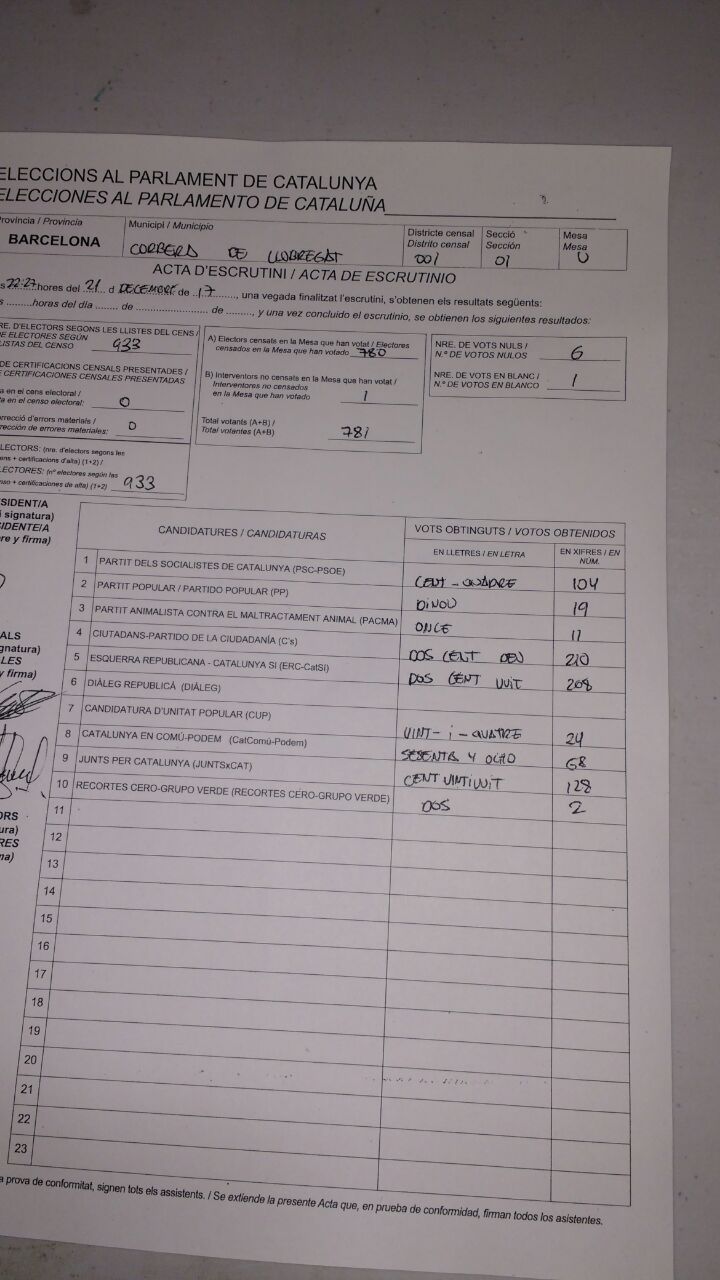 ELECCIONS AL PARLAMENT DE CATALUNYA
ELECCIONES AL PARLAMENTO DE CATALUÑA
Provincia / Provincia
BARCELONA
Municipi / Municipio
CORBERA DE LLOBREGAT
Districte censal
Distrito censal
001
Secció
Sección
01
Mesa
Mesa
U
ACTA D'ESCRUTINI / ACTA DE ESCRUTINIO
s 22:27 hores del 21 d DECEMBRE de 17, una vegada finalitzat l'escrutini, s'obtenen els resultats següents:
s .........horas del día ....... de .......................... de ........, y una vez concluido el escrutinio, se obtienen los siguientes resultados:
RE. D'ELECTORS SEGONS LES LLISTES DEL CENS /
DE ELECTORES SEGÚN
LISTAS DEL CENSO 933
DE CERTIFICACIONS CENSALS PRESENTADES /
E CERTIFICACIONES CENSALES PRESENTADAS
a en el cens electoral /
ta en el censo electoral: 0
orrecció d'errors materials /
rección de errores materiales: 0
LECTORS: (nre. d'electors segons les
ens + certificacions d'alta) (1+2) /
LECTORES: (nº electores según las
nso + certificaciones de alta) (1+2) 933
A) Electors censats en la Mesa que han votat / Electores
censados en la Mesa que han votado 780
B) Interventors no censats en la Mesa que han votat /
Interventores no censados
en la Mesa que han votado 1
Total votants (A+B) /
Total votantes (A+B) 781
NRE. DE VOTS NULS /
N.º DE VOTOS NULOS 6
NRE. DE VOTS EN BLANC /
N.º DE VOTOS EN BLANCO 1
SIDENT/A
i signatura)
SIDENTE/A
re y firma)
ALS
gnatura)
LES
y firma)
ORS
ura)
RES
ma)
CANDIDATURES / CANDIDATURAS
VOTS OBTINGUTS / VOTOS OBTENIDOS
EN LLETRES / EN LETRA
EN XIFRES / EN
NÚM.
1 PARTIT DELS SOCIALISTES DE CATALUNYA (PSC-PSOE) CENT-QUADRE 104
2 PARTIT POPULAR / PARTIDO POPULAR (PP) DINOU 19
3 PARTIT ANIMALISTA CONTRA EL MALTRACTAMENT ANIMAL (PACMA) ONCE 11
4 CIUTADANS-PARTIDO DE LA CIUDADANÍA (C's) DOS CENT DEU 210
5 ESQUERRA REPUBLICANA - CATALUNYA SI (ERC-CatSí) DOS CENT VUIT 208
6 DIÀLEG REPUBLICÀ (DIÀLEG)
7 CANDIDATURA D'UNITAT POPULAR (CUP) VINT-i-QUATRE 24
8 CATALUNYA EN COMÚ-PODEM (CatComú-Podem) SESENTA Y OCHO 68
9 JUNTS PER CATALUNYA (JUNTSxCAT) CENT VINTIVUIT 128
10 RECORTES CERO-GRUPO VERDE (RECORTES CERO-GRUPO VERDE) DOS 2
11
12
13
14
15
16
17
18
19
20
21
22
23
a prova de conformitat, signen tots els assistents. / Se extiende la presente Acta que, en prueba de conformidad, firman todos los asistentes.